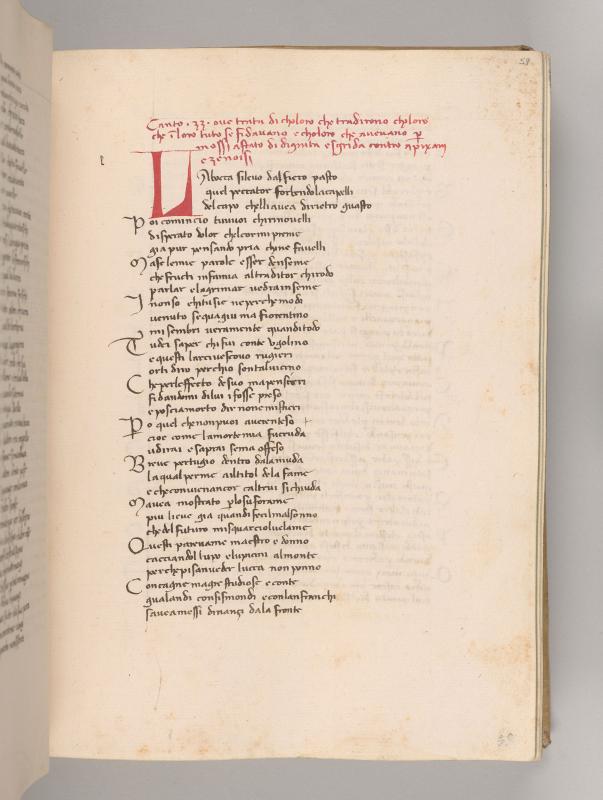 59
Canto · 33 · ove tratta di choloro che tradirono choloro
che i loro tuto se fidavano e choloro che avevano p
mossi a stato di dignita e sgrida contro a pixani
e zenoisi
l
L Abocca silevo dalfiero pasto
quel peccator forbendola capelli
del capo chelli avea dirietro guasto
Poi comincio tuvuoi chirinovelli
disperato dolor chelcor mi preme
gia pur pensando pria chine favelli
Mase lemie parole esser denseme
che fructi infamia altraditor chirodo
parlar elagrimar vedrainseme
I nonso chituse ne perche modo
venuto sequagiu ma fiorentino
mi sembri veramente quanditodo
Tu dei saper chi fui conte vgolino
e questi larcivescovo rugieri
orti diro perchio sontalvicino
Cheperleffecto desuo mapensieri
fidandomi dilui i fosse preso
e poscia morto dir none mistieri
Po quel chenonpuoi aver enteso
cioe come lamorte mia fu cruda
udirai e saprai sema offeso
Breve pertugio dentro dalamuda
la qual perme ailtitol dela fame
e checonvienancor caltrui sichiuda
Mavea mostrato plosuforame
piu lieve gia quandifecilmalsonno
che del futuro misquarciolvelame
Questi parevame maestro e donno
cacciandol lupo elupicini almonte
perchepisanveder lucca nonponno
Concagne magre studiose e conte
gualandi con sismondi econlanfranchi
saveamessi dinanzi dala fronte
59